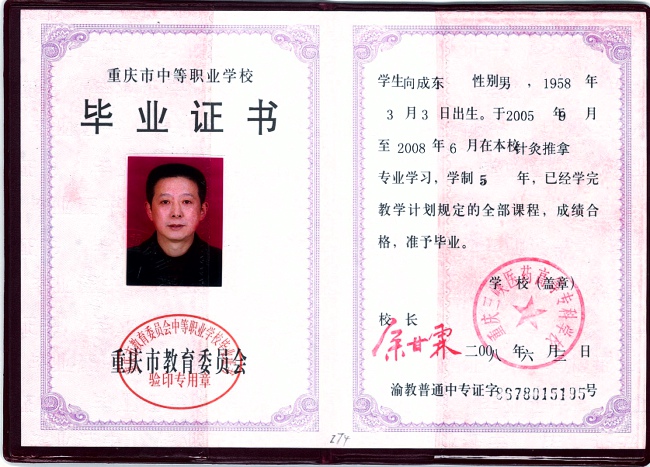 重庆市中等职业学校
毕业证书
重庆市教育委员会
验印专用章
学生向成东 性别男，1958 年
3 月 3 日出生。于2005 年9 月
至 2008 年 6 月在本校针灸推拿
专业学习，学制 5 年，已经学完
教学计划规定的全部课程，成绩合
格，准予毕业。
学 校（盖章）
重庆三峡医药高等专科学校
校 长
二00八 年 六 月 三 日
渝教普通中专证字8678015195号
274